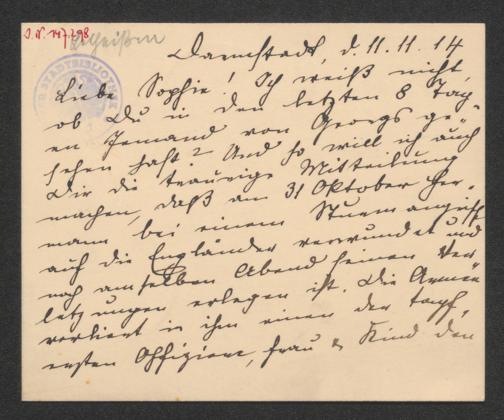 J.N. 147.298
Darmstadt, d. 11.11.14
Liebe Sophie! Ich weiß nicht,
ob Du in den letzten 8 Tag-
en Jemand von Georgs ge-
sehen hast? Und so will ich auch
Dir die traurige Mitteilung
machen, daß am 31 Oktober Her-
mann bei einem Sturmangriff
auf die Engländer verwundet und
noch am selben Abend seinen Ver-
letzungen erlegen ist. Die Armee
verliert in ihm einen der tapf-
ersten Offiziere, Frau & Kind den